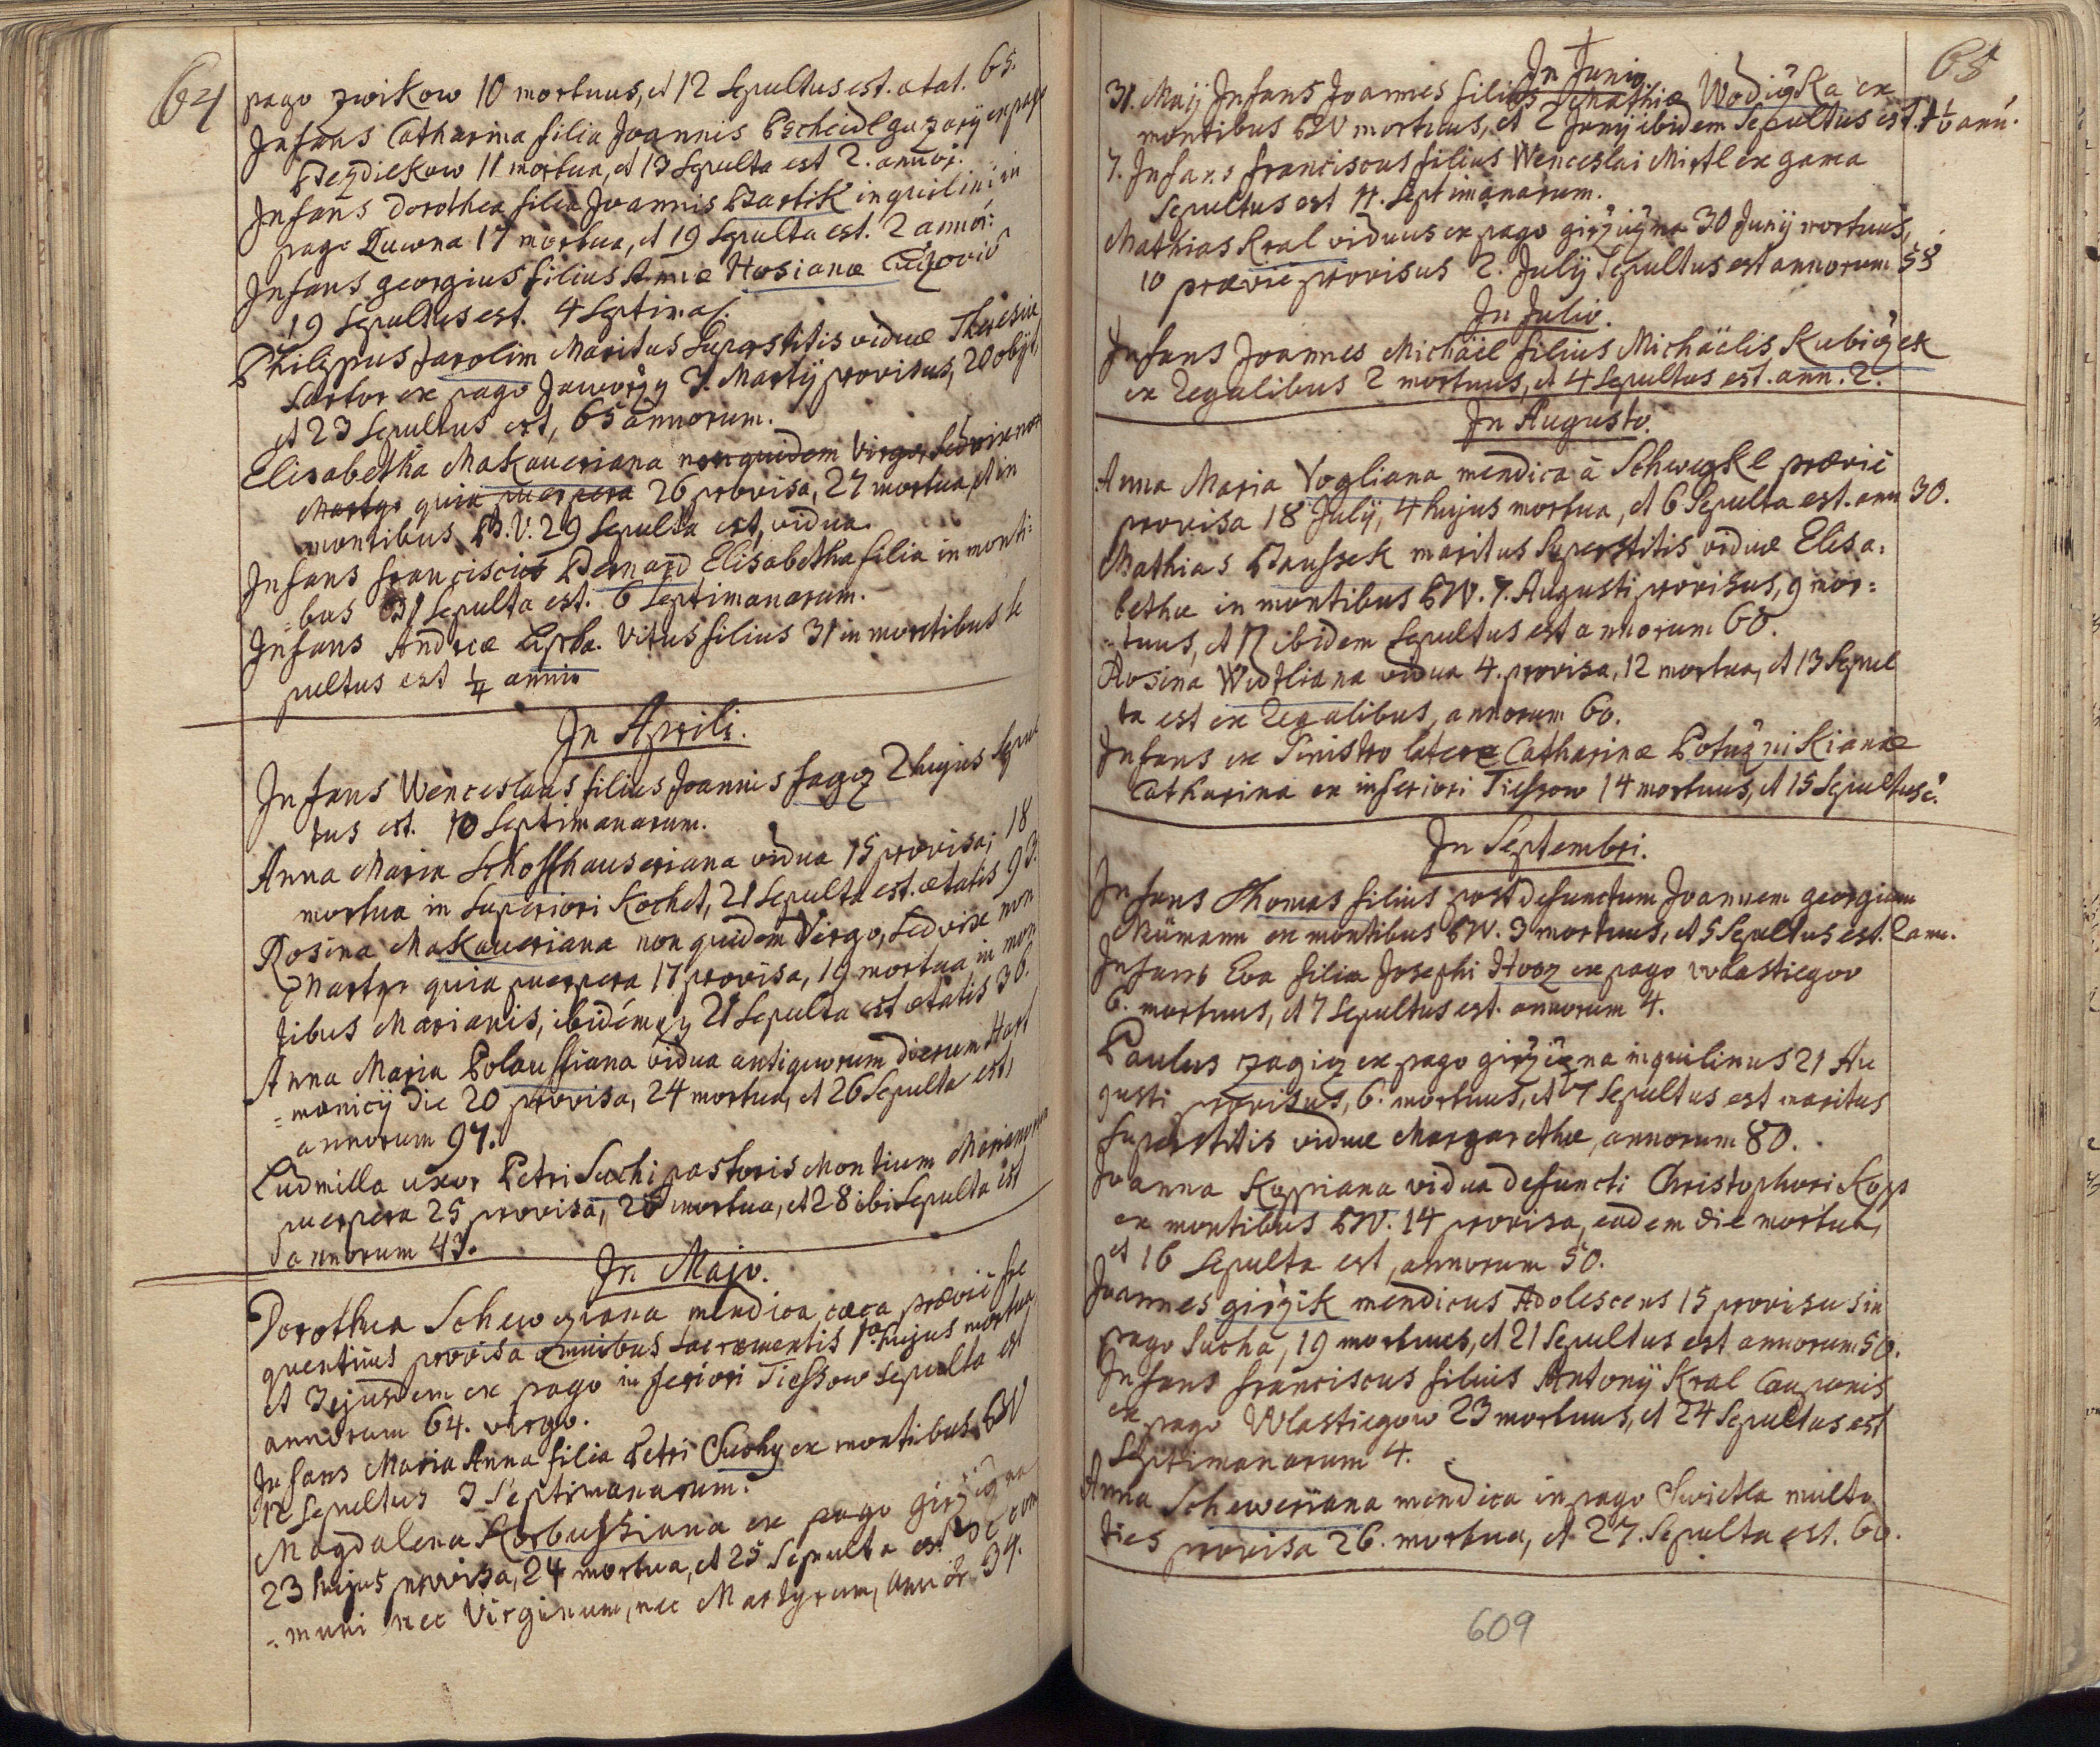 64
pago zwikow 10 mortuus, et 12 Sepultus est. ætat. 65.
Infans Catharina filia Joannis ex pago
Bezdiekow 11 mortua, et 13 Sepulta est 2. annor.
Infans Dorothea filia Joannis Bartik inquilini in
pago Luwna 17 mortua, et 19 Sepulta est. 2 annor:
Infans georgius filius Annæ Hosianæ
19 Sepultus est. 4 Septima.
Philippus Jarolim Maritus Superstitis viduæ Theresiæ
Sartor ex pago Jaworzy 7. Martÿ provisus, 20 obijt,
et 23 Sepultus est, 65 annorum.
Elisabetha Makaueriana non quidem Virgo, sed vix non
Martyr quia puerpera 26 provisa, 27 mortua, et in
montibus B.V. 29 Sepulta est, vidua.
Infans francisci Bernard Elisabetha filia in monti:
=bus 31 Sepulta est. 6 Septimanarum.
Infans Andreæ Lipka. Vitus filius 31 in montibus se
pultus est ¼ anni
In Aprili.
Infans Wenceslaus filius Joannis fagz 2 hujus Sepul
tus est. 10 Septimanarum.
Anna Maria Schoffhauseriana vidua 15 provisa, 18
mortua in Superiori Kochet, 21 Sepulta est. ætatis 93.
Rosina Makaueriana non quidem Virgo, sed vix non
Martyr quia puerpera 17 provisa, 19 mortua in mon
tibus Marianis, ibidémqz 21 Sepulta est ætatis 36.
Anna Maria Polauffiana vidua antiquorum dierum Hart
=manicÿ die 20 provisa, 24 mortua, et 26 Sepulta est,
annorum 97.
Ludmilla uxor Petri Suchi pastoris Montium Marianorum
puerpera 25 provisa, 26 mortua, et 28 ibi Sepulta est
annorum 43.
In Majo.
Dorothea Schewcziana mendica cæca prævie fre
quentius provisa omnibus Sacramentis 1ª hujus mortua
et 3 ejusdem ex pago inferiori Tiessow Sepulta est
annorum 64. virgo.
Infans Maria Anna filia Petri Suchy ex montibus BV
12 Sepultus 3 Septimanarum.
Magdalena Korbussiana ex pago girziczna
23 hujus provisa, 24 mortua, et 25 Sepulta est de com
=muni nec Virginum, nec Martyrum, annor 34.
65
In Junio
31. Maÿ Infans Joannes filius Mathiæ Wodiczka ex
montibus BV mortuus, et 2 Junÿ ibidem Sepultus est. 1½ anni.
7. Infans franciscus filius Wenceslai Mirtl ex gama
Sepultus est 4. Septimanarum.
Mathias Kral viduus ex pago girziczna 30 Junÿ mortuus,
10 prævie provisus 2. Julÿ Sepultus est annorum 58
In Julio.
Infans Joannes Michaël filius Michäelis Kubiczek
ex Regalibus 2 mortuus, et 4 Sepultus est. ann. 2.
In Augusto.
Anna Maria Vogliana mendica à Schwegkl prævie
provisa 18 Julÿ, 4 hujus mortua, et 6 Sepulta est. ann 30.
Mathias Baussek maritus Superstitis viduæ Elisa=
bethæ in montibus BW. 7. Augusti provisus, 9 mor=
=tuus, et 11 ibidem Sepultus est annorum 60.
Rosina Widtliana vidua 4. provisa, 12 mortua, et 13 Sepul
ta est ex Regalibus, annorum 60.
Infans ex Sinistro latere Catharinæ Potužnikianæ
Catharina ex inferiori Tiessow 14 mortuus, et 15 Sepultus ē.
In Septembri.
Infans Thomas filius post defunctum Joannem georgium
Nümann ex montibus BW. 3 mortuus, et 5 Sepultus est. 2 ann.
Infans Eva filia Josephi Hwoz ex pago wlastiegow
6. mortuus, et 7 Sepultus est. annorum 4.
Paulus zagicz ex pago girziczna inquilinus 21 Au
gusti provisus, 6. mortuus, et 7 Sepultus est maritus
Superstitis viduæ Margarethæ, annorum 80.
Joanna Koppiana vidua defuncti Christophori Kopp
ex montibus BW. 14 provisa, eadem die mortua,
et 16 Sepulta est, annorum 50.
Joannes girzik mendicus Adolescens 15 provisus in
pago Sucha, 19 mortuus, et 21 Sepultus est annorum 50.
Infans franciscus filius Antonÿ Kral Cauponis
ex pago Wlastiegow 23 mortuus, et 24 Sepultus est
Septimanarum 4.
Anna Scheweriana mendica in pago Swietla multo
ties provisa 26. mortua, et 27. Sepulta est. 60.
609